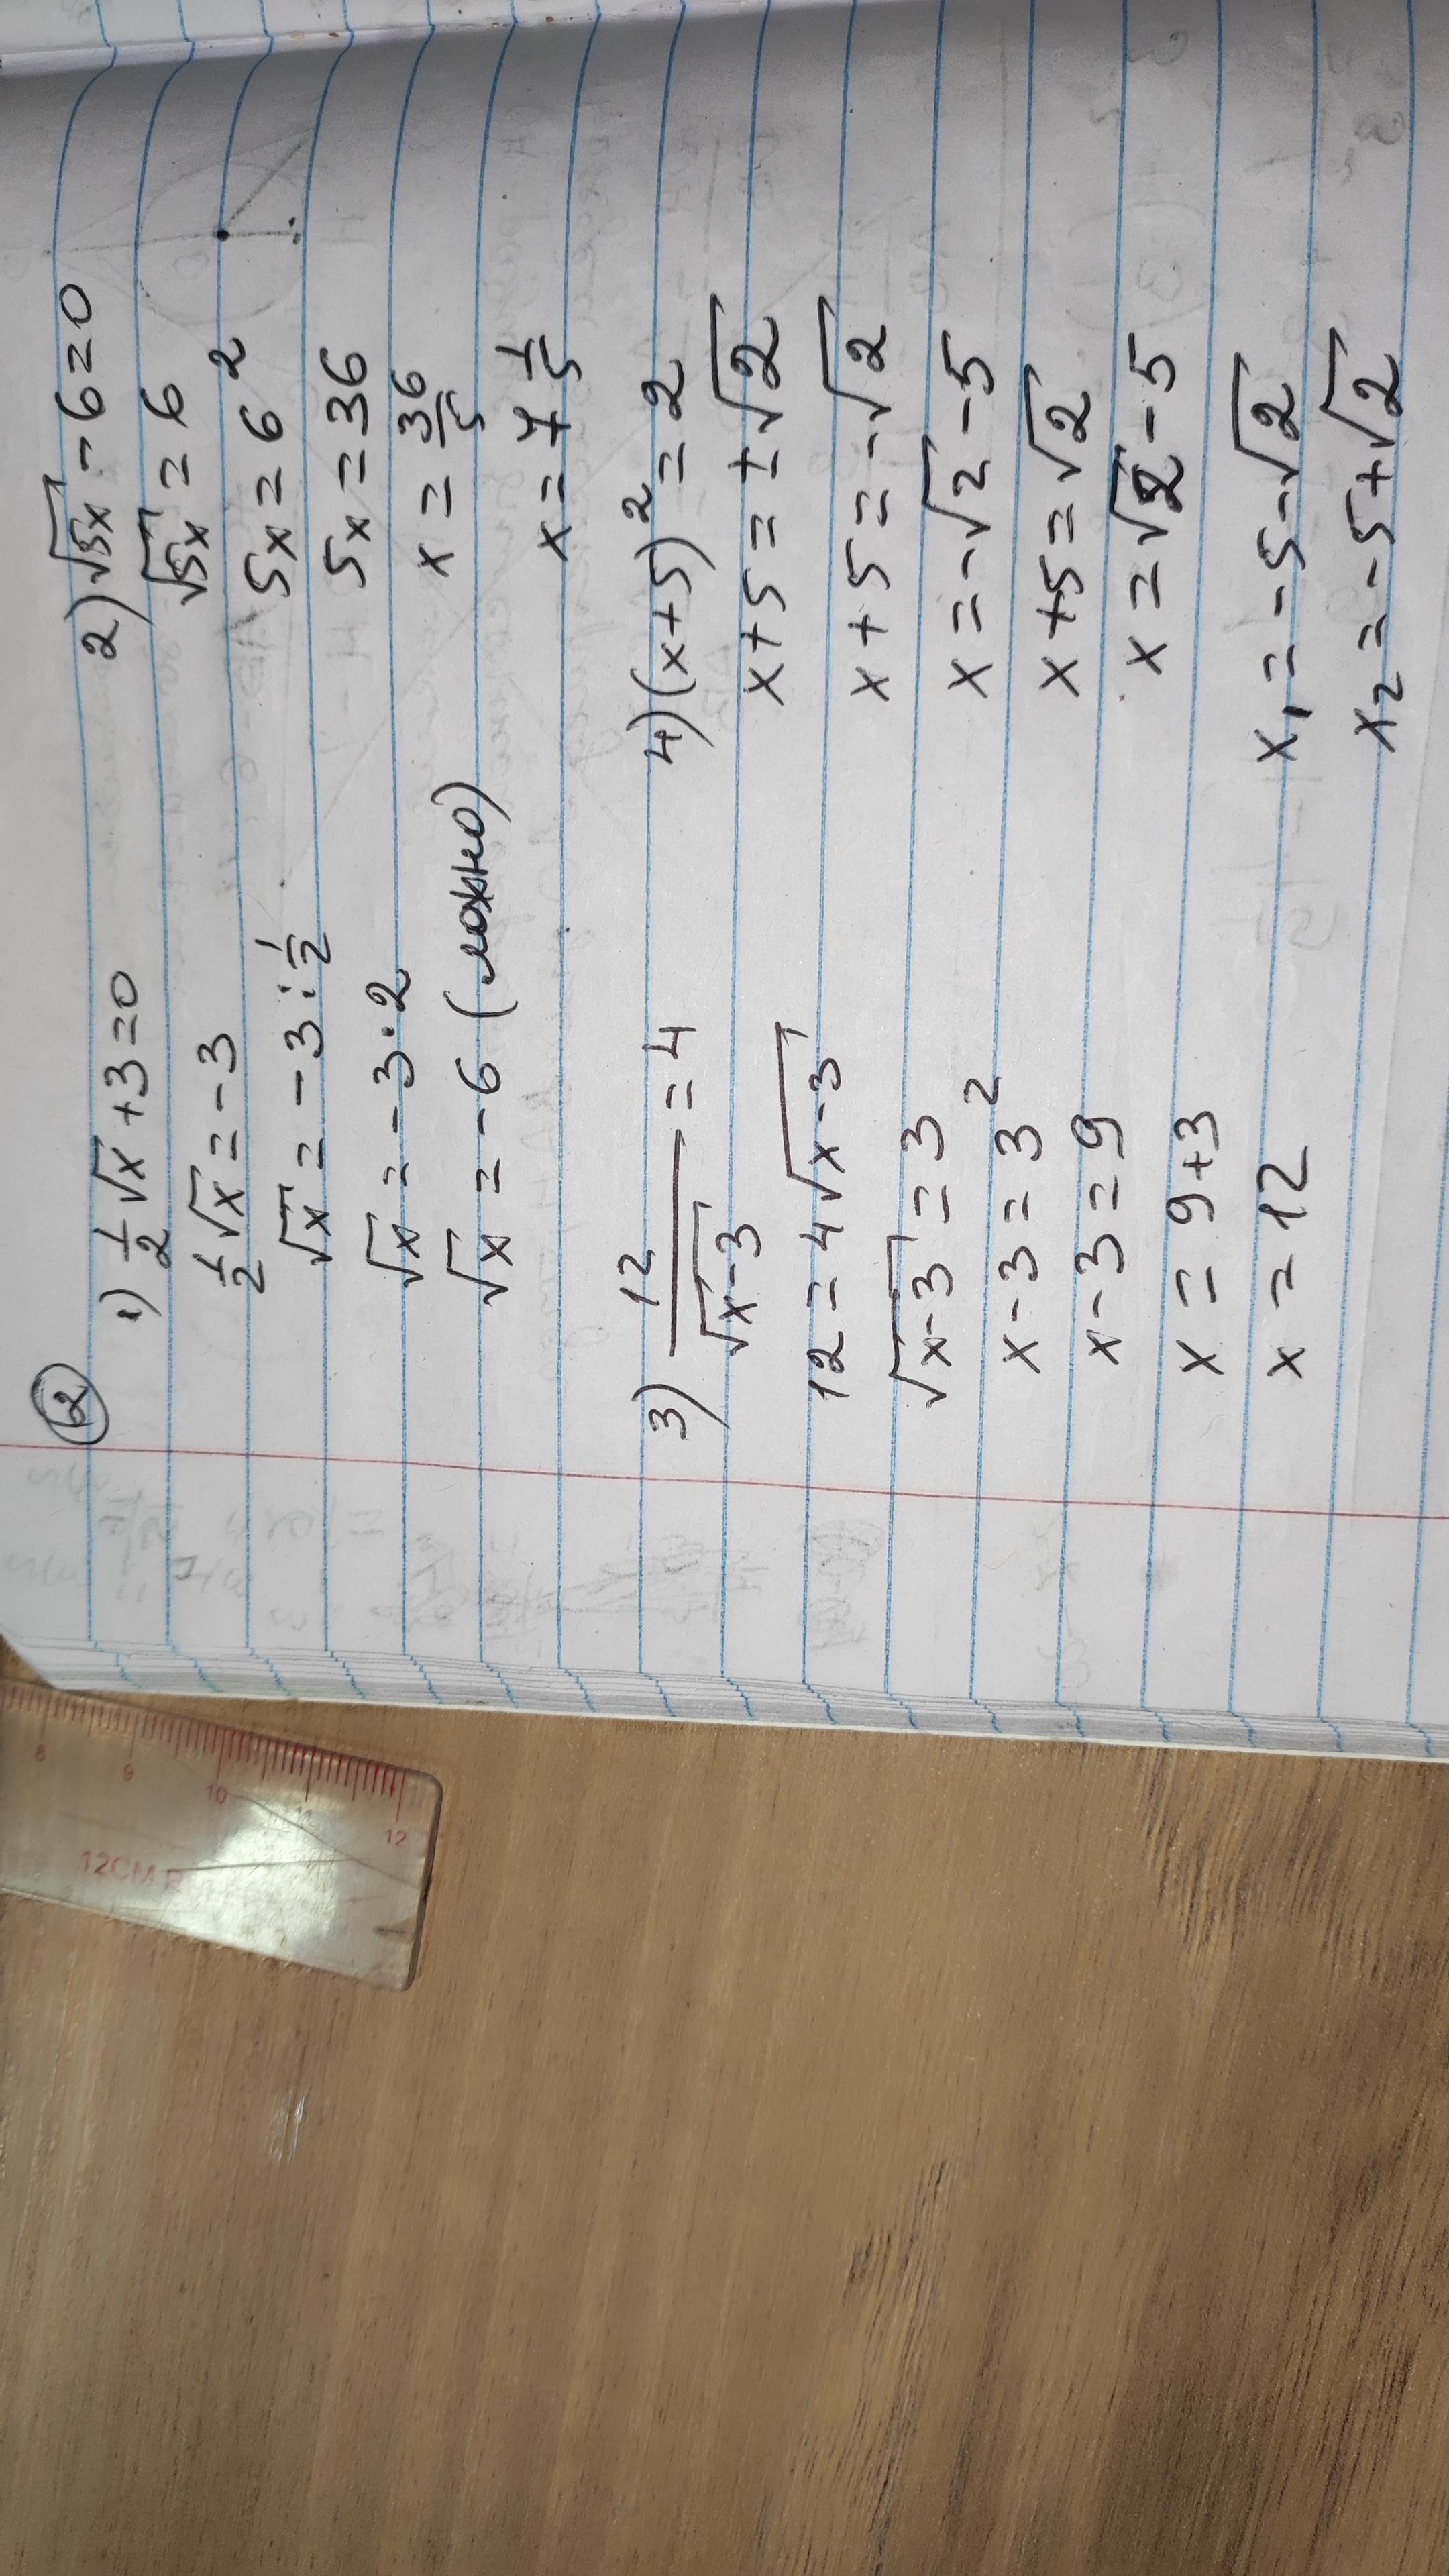 ②
1) 1/2 √x + 3 = 0
1/2 √x = -3
√x = -3 : 1/2
√x = -3 · 2
√x = -6 (ложно)
2) √5x - 6 = 0
√5x = 6
5x = 6²
5x = 36
x = 36/5
x = 7 1/5
3) 12/√x-3 = 4
12 = 4√x-3
√x-3 = 3
x-3 = 3²
x-3 = 9
x = 9+3
x = 12
4) (x+5)² = 2
x+5 = ±√2
x+5 = -√2
x = -√2 - 5
x+5 = √2
x = √2 - 5
x₁ = -5-√2
x₂ = -5+√2
8 9 10 11 12
12CM